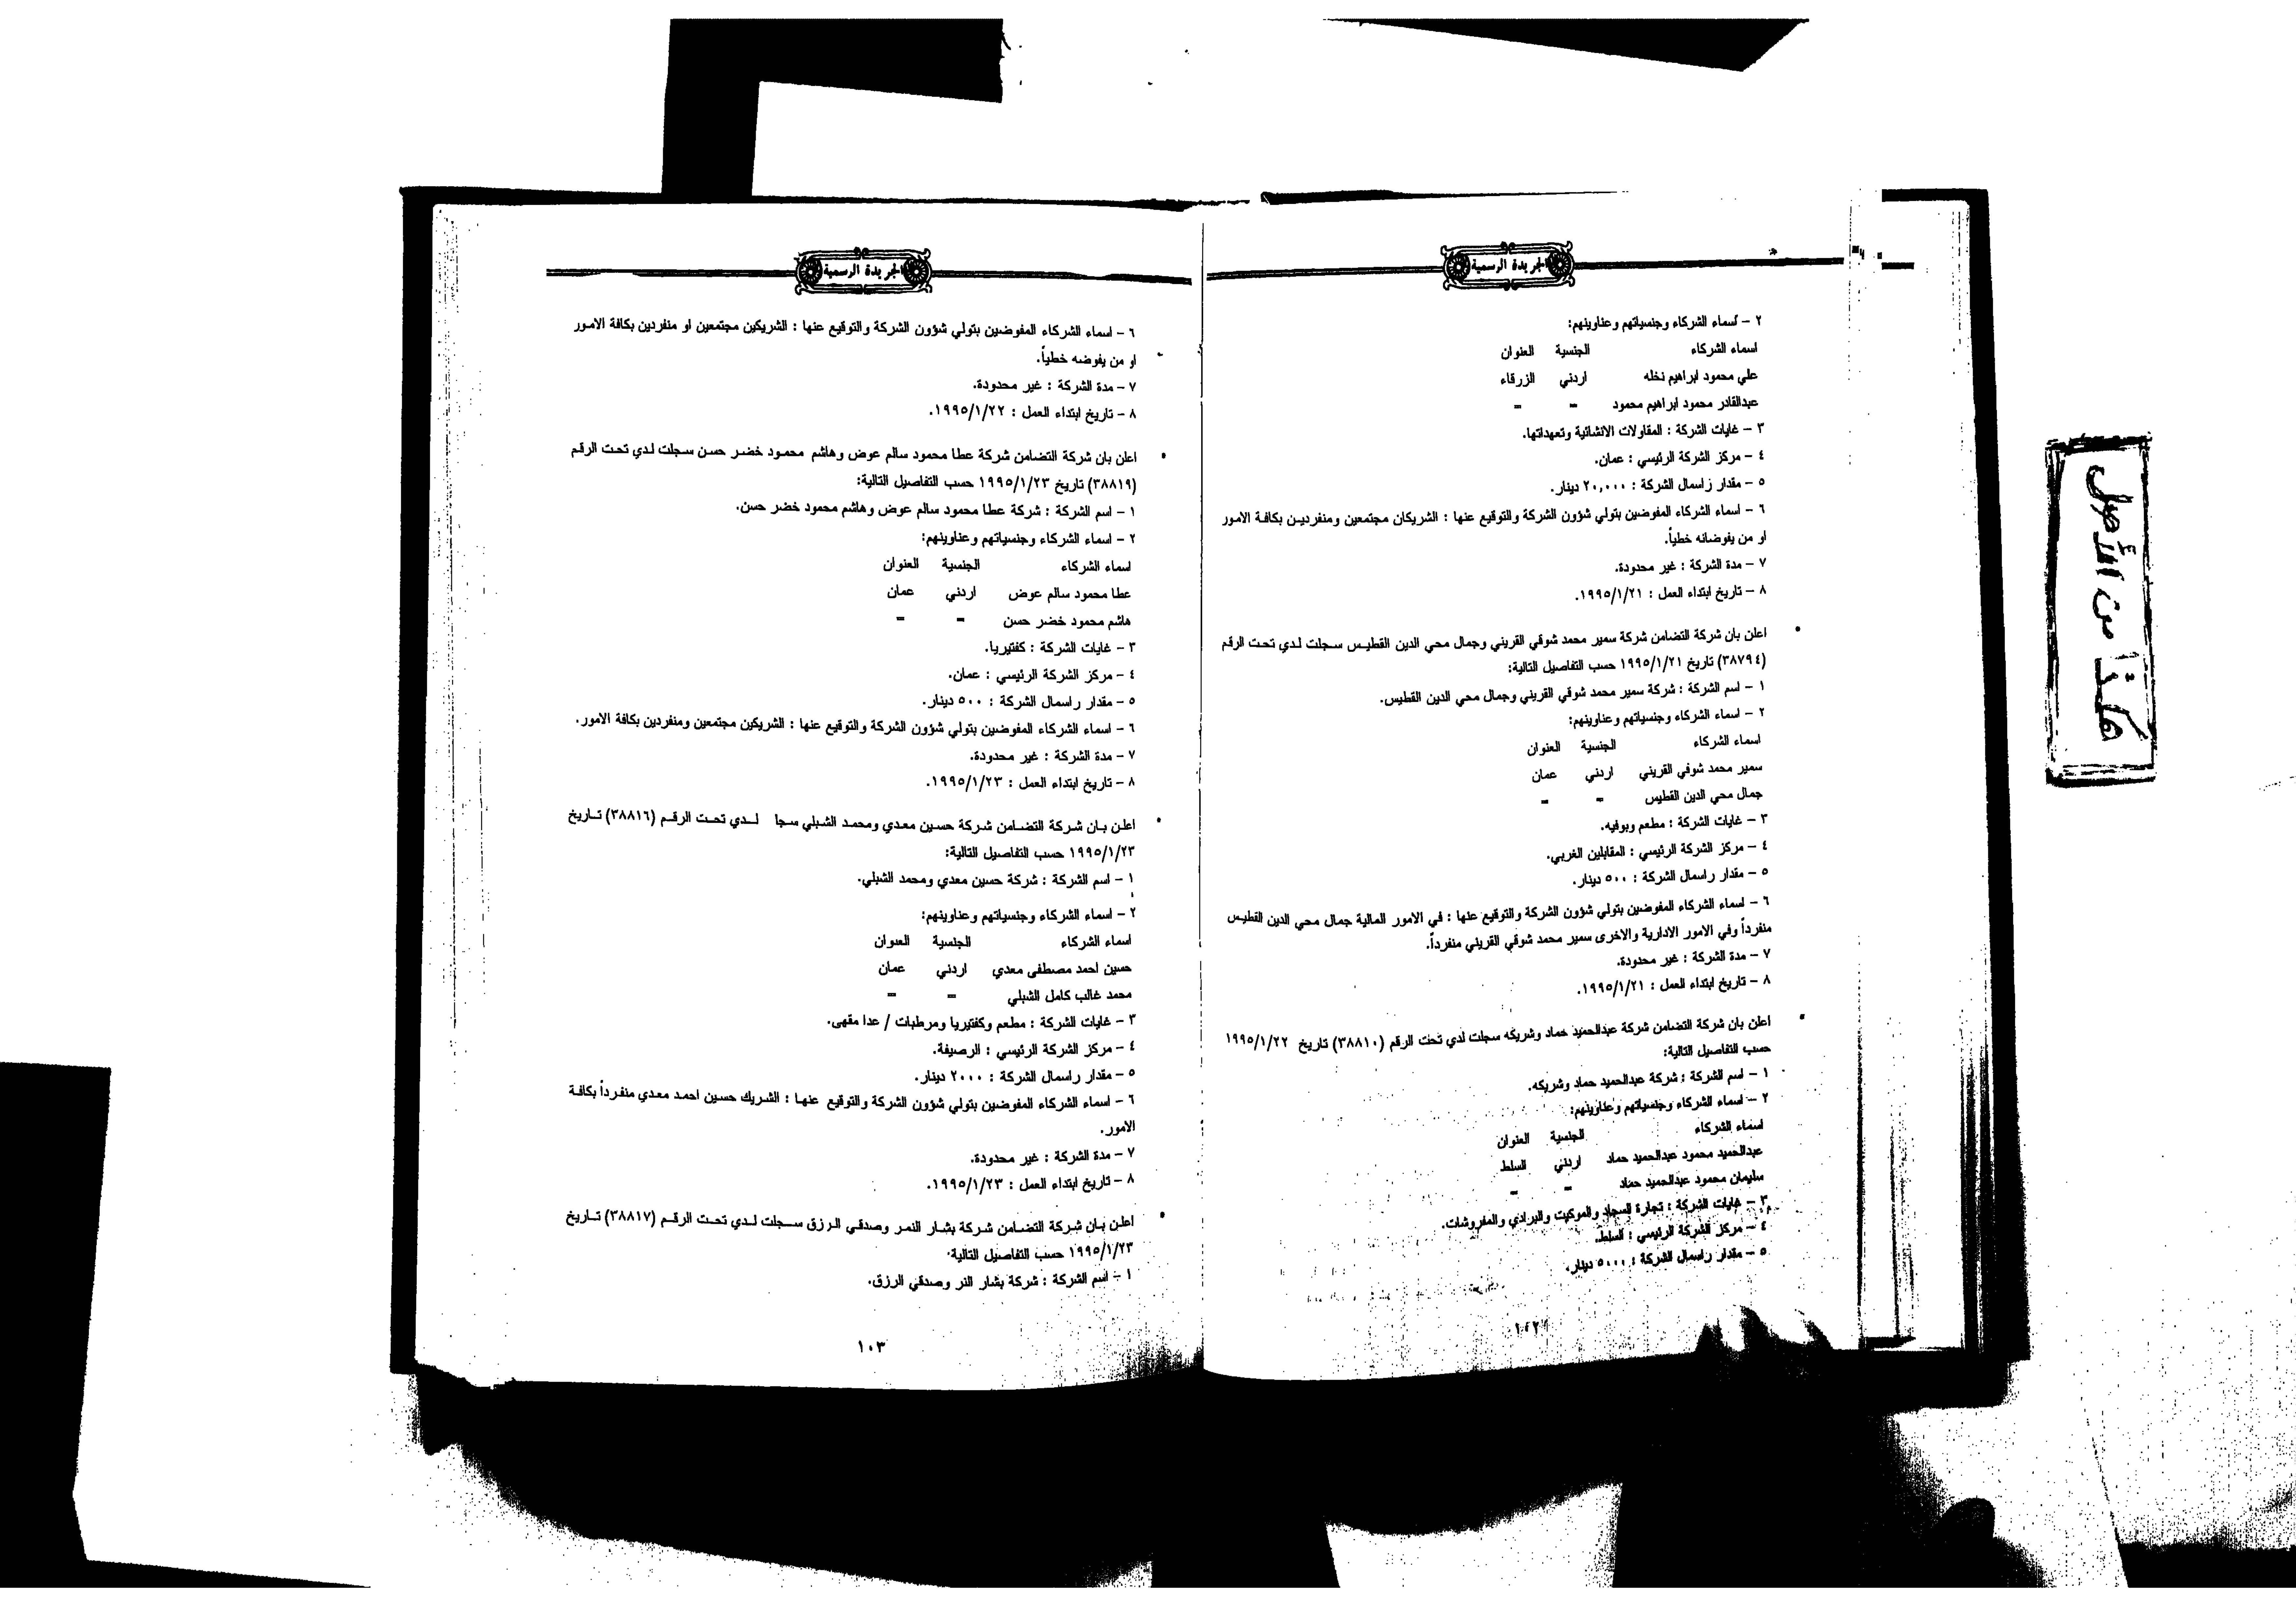 الجريدة الرسمية
٢ – أسماء الشركاء وجنسياتهم وعناوينهم:
اسماء الشركاء الجنسية العنوان
علي محمود ابراهيم نخله اردني الزرقاء
عبدالقادر محمود ابراهيم محمود = =
٣ – غايات الشركة : المقاولات الانشائية وتعهداتها.
٤ – مركز الشركة الرئيسي : عمان.
٥ – مقدار راسمال الشركة : ٢٠,٠٠٠ دينار.
٦ – اسماء الشركاء المفوضين بتولي شؤون الشركة والتوقيع عنها : الشريكان مجتمعين ومنفردين بكافة الامور
او من يفوضانه خطياً.
٧ – مدة الشركة : غير محدودة.
٨ – تاريخ ابتداء العمل : ١٩٩٥/١/٢١.
• اعلن بان شركة التضامن شركة سمير محمد شوقي القريني وجمال محي الدين القطيس سجلت لدي تحت الرقم
(٣٨٧٩٤) تاريخ ١٩٩٥/١/٢١ حسب التفاصيل التالية:
١ – اسم الشركة : شركة سمير محمد شوقي القريني وجمال محي الدين القطيس.
٢ – اسماء الشركاء وجنسياتهم وعناوينهم:
اسماء الشركاء الجنسية العنوان
سمير محمد شوقي القريني اردني عمان
جمال محي الدين القطيس = =
٣ – غايات الشركة : مطعم وبوفيه.
٤ – مركز الشركة الرئيسي : المقابلين الغربي.
٥ – مقدار راسمال الشركة : ٥٠٠ دينار.
٦ – اسماء الشركاء المفوضين بتولي شؤون الشركة والتوقيع عنها : في الامور المالية جمال محي الدين القطيس
منفرداً وفي الامور الادارية والاخرى سمير محمد شوقي القريني منفرداً.
٧ – مدة الشركة : غير محدودة.
٨ – تاريخ ابتداء العمل : ١٩٩٥/١/٢١.
• اعلن بان شركة التضامن شركة عبدالحميد حماد وشريكه سجلت لدي تحت الرقم (٣٨٨١٠) تاريخ ١٩٩٥/١/٢٢
حسب التفاصيل التالية:
١ – اسم الشركة : شركة عبدالحميد حماد وشريكه.
٢ – اسماء الشركاء وجنسياتهم وعناوينهم:
اسماء الشركاء الجنسية العنوان
عبدالحميد محمود عبدالحميد حماد اردني السلط
سليمان محمود عبدالحميد حماد = =
٣ – غايات الشركة : تجارة السجاد والموكيت والبرادي والمفروشات.
٤ – مركز الشركة الرئيسي : السلط.
٥ – مقدار راسمال الشركة : ٥٠٠٠ دينار.
الجريدة الرسمية
٦ – اسماء الشركاء المفوضين بتولي شؤون الشركة والتوقيع عنها : الشريكين مجتمعين او منفردين بكافة الامور
او من يفوضه خطياً.
٧ – مدة الشركة : غير محدودة.
٨ – تاريخ ابتداء العمل : ١٩٩٥/١/٢٢.
• اعلن بان شركة التضامن شركة عطا محمود سالم عوض وهاشم محمود خضر حسن سجلت لدي تحت الرقم
(٣٨٨١٩) تاريخ ١٩٩٥/١/٢٣ حسب التفاصيل التالية:
١ – اسم الشركة : شركة عطا محمود سالم عوض وهاشم محمود خضر حسن.
٢ – اسماء الشركاء وجنسياتهم وعناوينهم:
اسماء الشركاء الجنسية العنوان
عطا محمود سالم عوض اردني عمان
هاشم محمود خضر حسن = =
٣ – غايات الشركة : كفتيريا.
٤ – مركز الشركة الرئيسي : عمان.
٥ – مقدار راسمال الشركة : ٥٠٠ دينار.
٦ – اسماء الشركاء المفوضين بتولي شؤون الشركة والتوقيع عنها : الشريكين مجتمعين ومنفردين بكافة الامور.
٧ – مدة الشركة : غير محدودة.
٨ – تاريخ ابتداء العمل : ١٩٩٥/١/٢٣.
• اعلن بان شركة التضامن شركة حسين معدي ومحمد الشبلي سجا لدي تحت الرقم (٣٨٨١٦) تاريخ
١٩٩٥/١/٢٣ حسب التفاصيل التالية:
١ – اسم الشركة : شركة حسين معدي ومحمد الشبلي.
٢ – اسماء الشركاء وجنسياتهم وعناوينهم:
اسماء الشركاء الجنسية العنوان
حسين احمد مصطفى معدي اردني عمان
محمد غالب كامل الشبلي = =
٣ – غايات الشركة : مطعم وكفتيريا ومرطبات / عدا مقهى.
٤ – مركز الشركة الرئيسي : الرصيفة.
٥ – مقدار راسمال الشركة : ٢٠٠٠ دينار.
٦ – اسماء الشركاء المفوضين بتولي شؤون الشركة والتوقيع عنها : الشريك حسين احمد معدي منفرداً بكافة
الامور.
٧ – مدة الشركة : غير محدودة.
٨ – تاريخ ابتداء العمل : ١٩٩٥/١/٢٣.
• اعلن بان شركة التضامن شركة بشار النمر وصدقي الرزق سجلت لدي تحت الرقم (٣٨٨١٧) تاريخ
١٩٩٥/١/٢٣ حسب التفاصيل التالية:
١ – اسم الشركة : شركة بشار النر وصدقي الرزق.
١٠٣
هكذا من الأصل